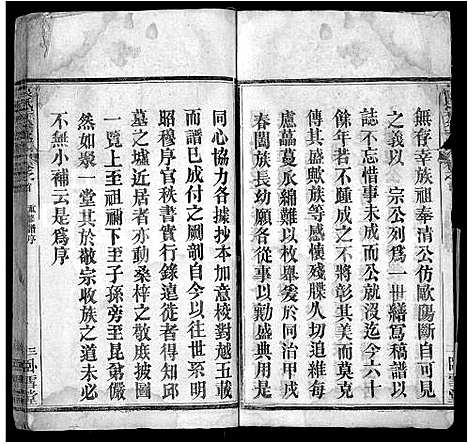 無存幸族祖奉清公仿歐陽斷自可見
之義以 宗公列爲一世繕寫稿譜以
誌不忘惜事未成而公就沒迄今六十
餘年若不踵而行之將彰其美而莫克
繼盛於我族等感懷殘牒久切追維每
慮藟蔓瓜綿難以枚舉爰於同治
春闔族長幼願各從事以勷盛典用是
同心協力各據抄本加意校對越五載
而譜已成付之剞劂自今以往世系明
昭穆序官秩書實行錄遠徙者得知邱
墓之墟近居者亦動桑梓之敬庶披圖
一覽上至祖禰下至子孫旁至昆弟儼
然如聚一堂其於敬宗收族之道未必
不無小補云是爲序
三
臥雪堂